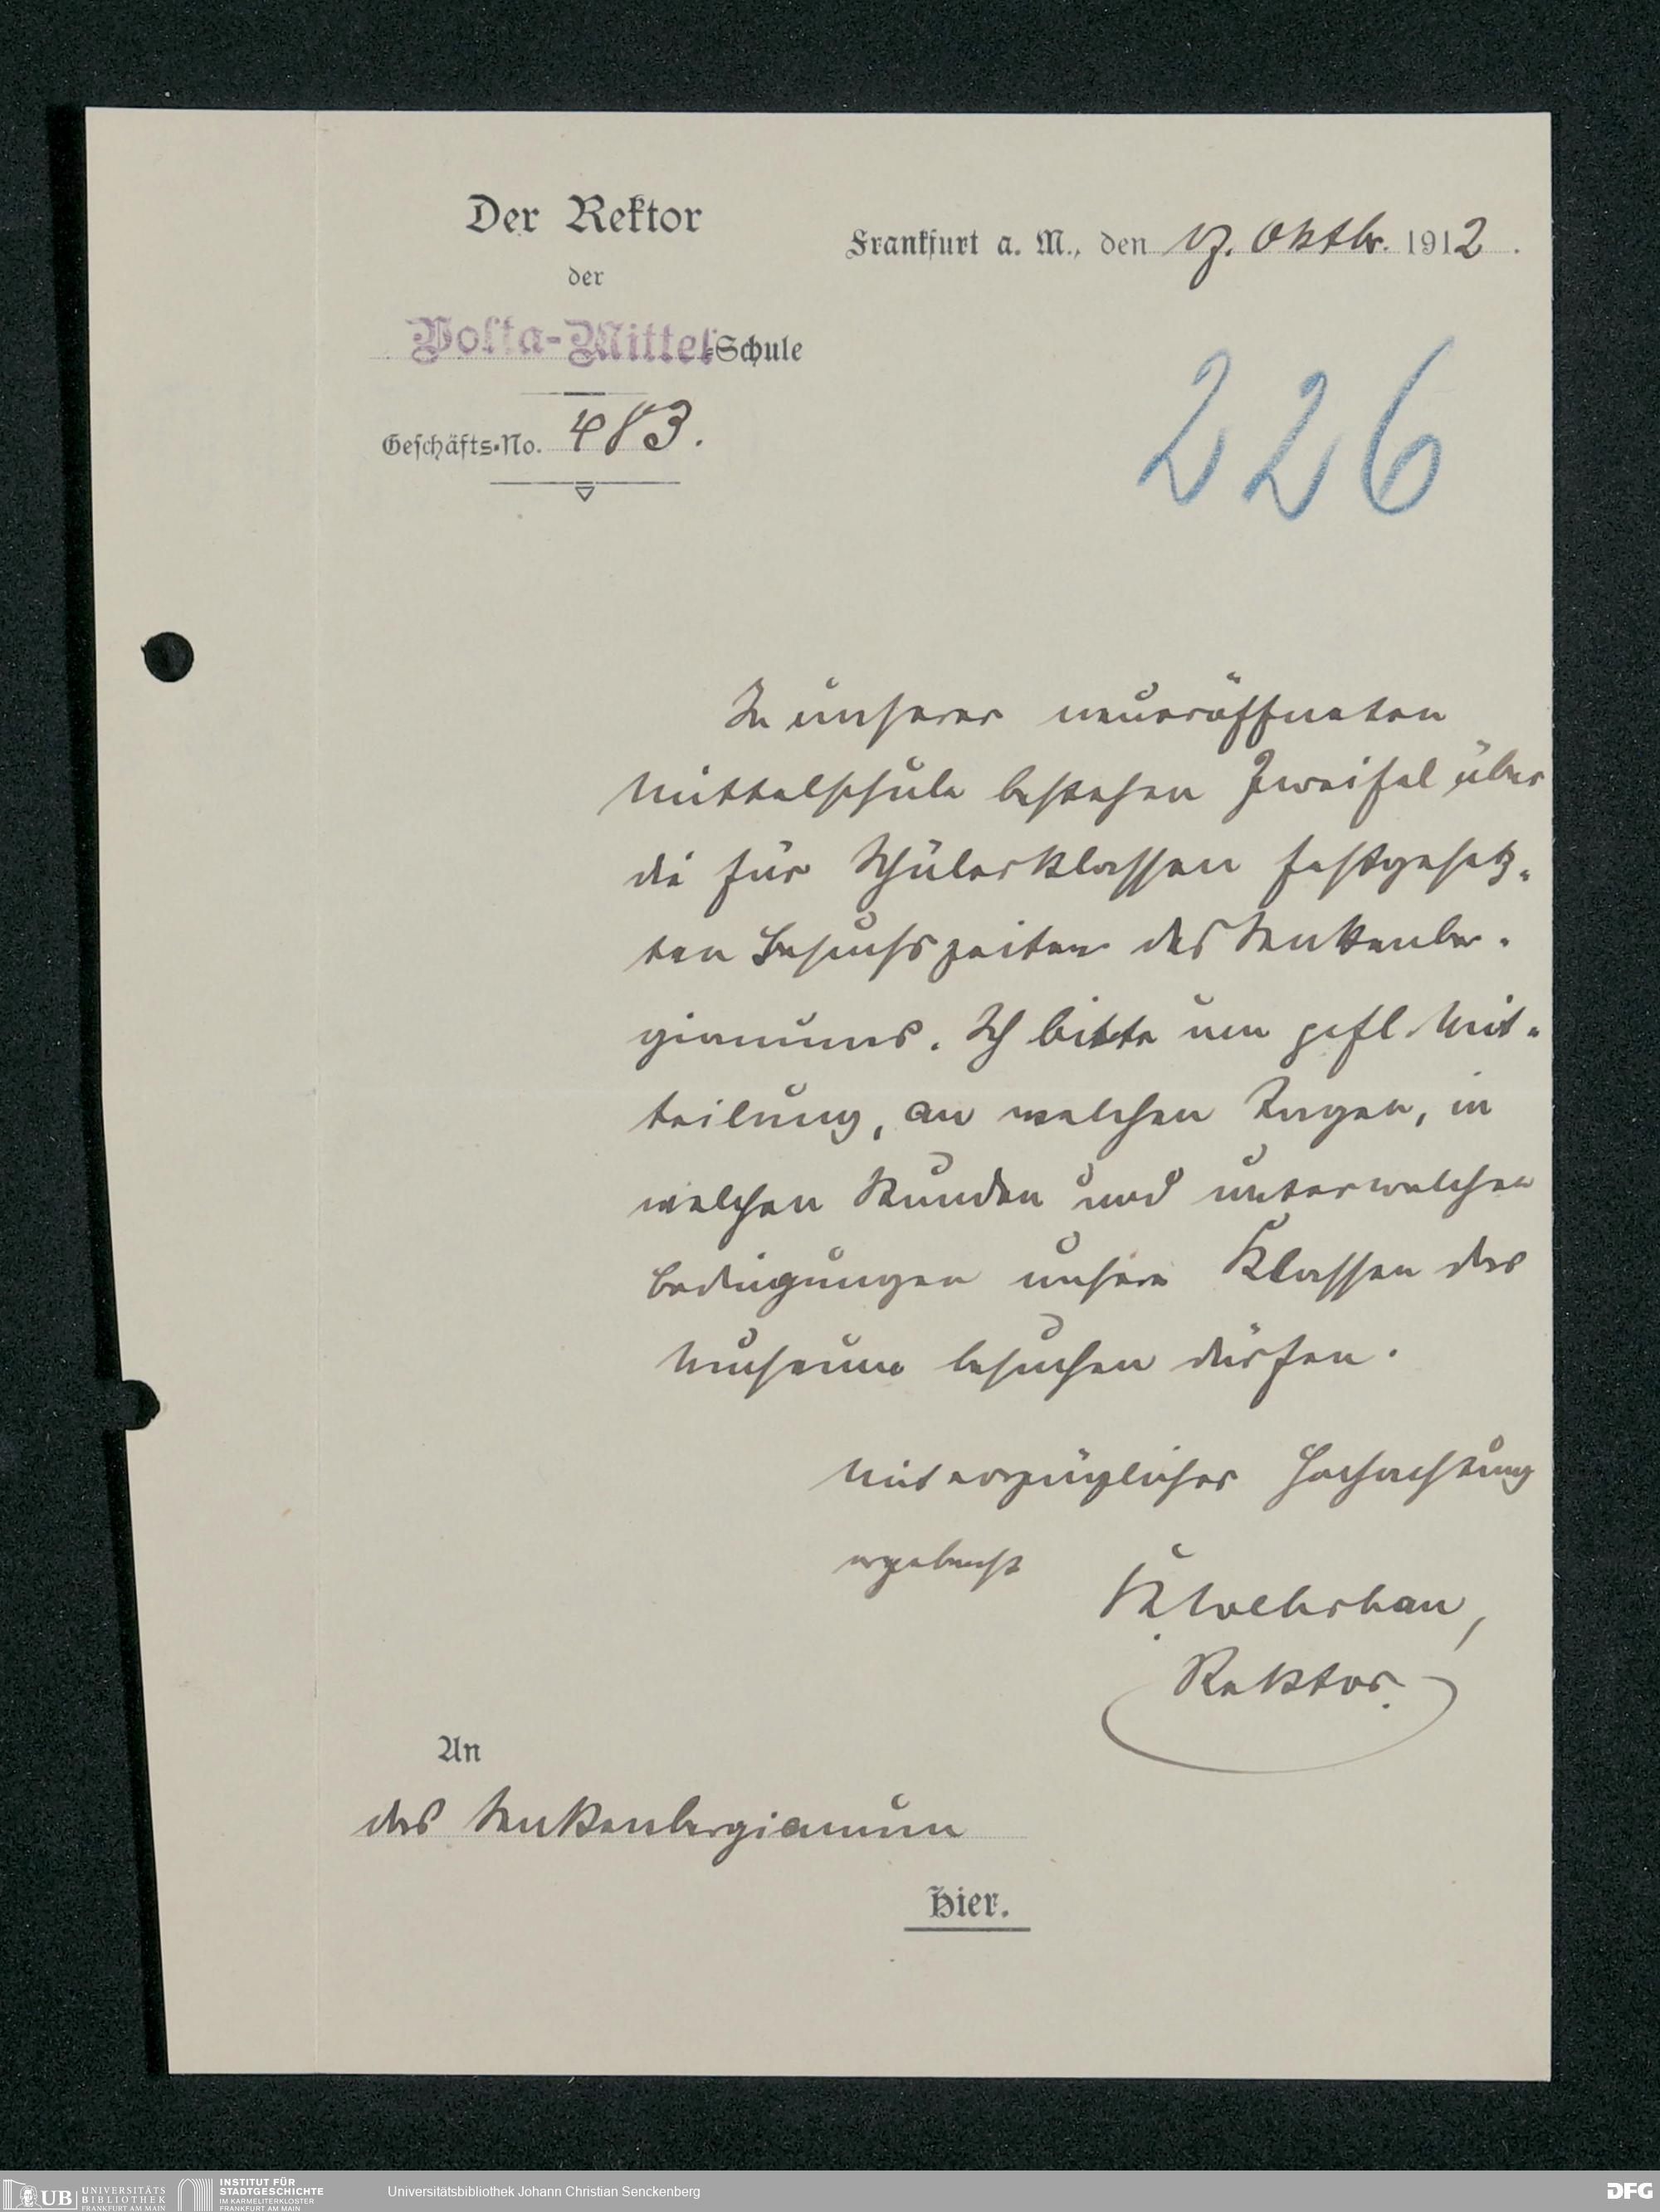 Der Rektor
der
Volta-Mittel-Schule
Geschäfts-No. 483.
Frankfurt a. M., den 17. Oktbr. 1912.
226
In unserer neueröffneten
Mittelschule bestehen Zweifel über
die für Schülerklassen festgesetz-
ten Besuchszeiten des Senckenber-
gianums. Ich bitte um gefl. Mit-
teilung, an welchen Tagen, in
welchen Stunden und unter welchen
Bedingungen unsere Klassen das
Museum besuchen dürfen.
Mit vorzüglicher Hochachtung
ergebenst
K. Wehrhan,
Rektor.
An
das Senckenbergianum
Hier.
UB UNIVERSITÄTS
BIBLIOTHEK
FRANKFURT AM MAIN
INSTITUT FÜR
STADTGESCHICHTE
IM KARMELITERKLOSTER
FRANKFURT AM MAIN
Universitätsbibliothek Johann Christian Senckenberg
DFG